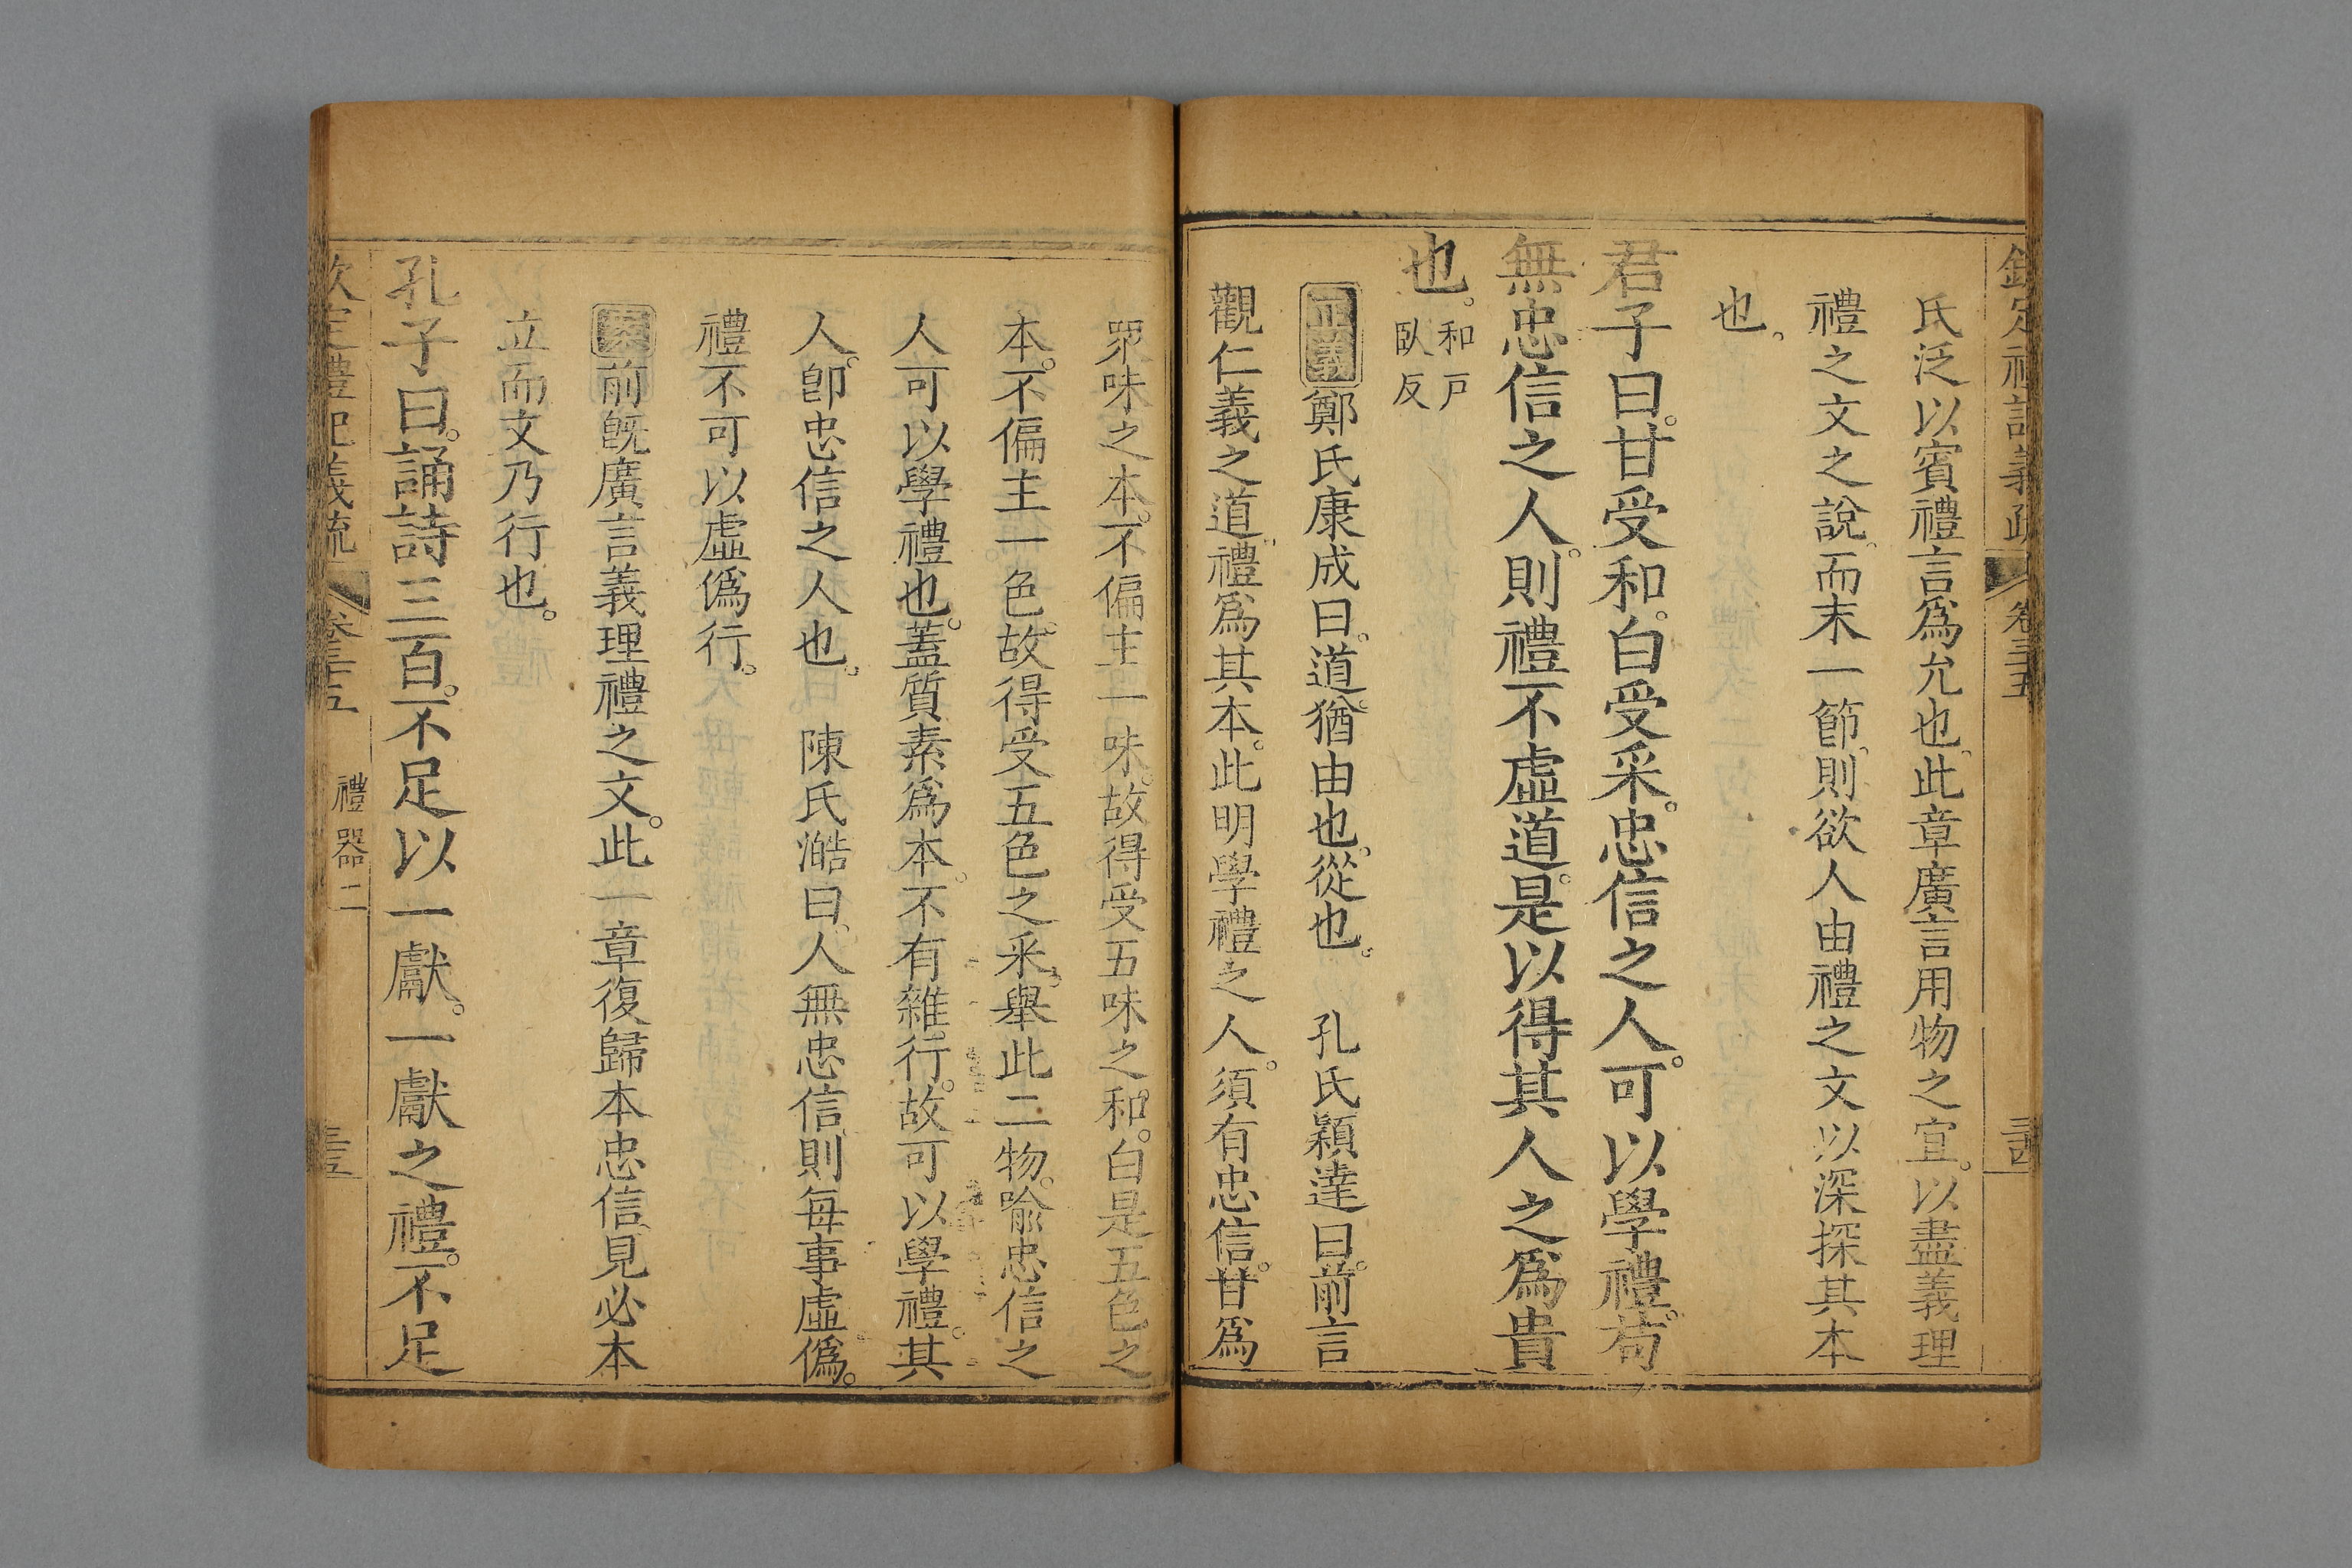 欽定禮記義疏 卷三十五 三四
氏泛以賓禮言爲允也。此章廣言用物之宜。以盡義理
禮之文之說。而末一節。則欲人由禮之文以深探其本
也。
君子曰。甘受和。白受采。忠信之人。可以學禮。苟
無忠信之人。則禮不虛道。是以得其人之爲貴
也。和戶臥反
正義鄭氏康成曰。道。猶由也。從也。 孔氏穎達曰。前言
觀仁義之道。禮爲其本。此明學禮之人。須有忠信。甘爲
眾味之本。不偏主一味。故得受五味之和。白是五色之
本。不偏主一色。故得受五色之采。舉此二物。喻忠信之
人可以學禮也。蓋質素爲本。不有雜行。故可以學禮。其
人。卽忠信之人也。 陳氏澔曰。人無忠信。則每事虛僞。
禮不可以虛僞行。
案前旣廣言義理禮之文。此一章復歸本忠信。見必本
立而文乃行也。
孔子曰。誦詩三百。不足以一獻。一獻之禮。不足
欽定禮記義疏 卷三十五 禮器二 三五